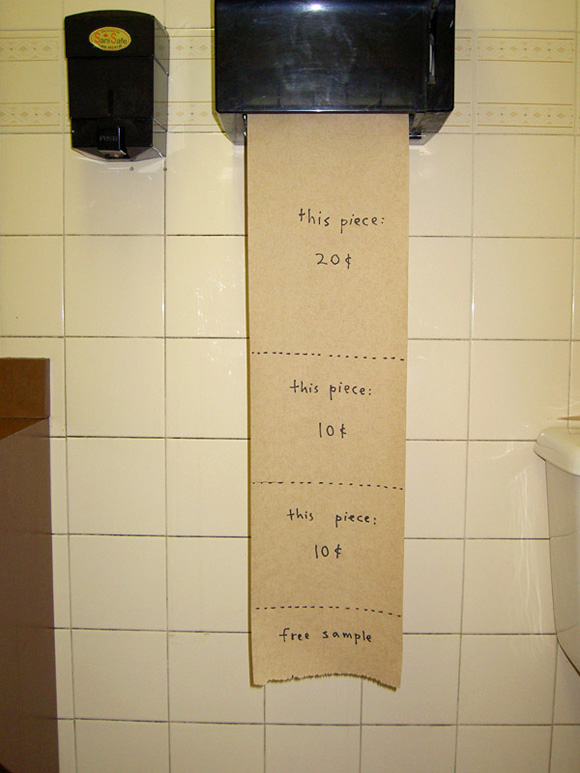 SaniSafe
PUSH
this piece:
20¢
this piece:
10¢
this piece:
10¢
free sample